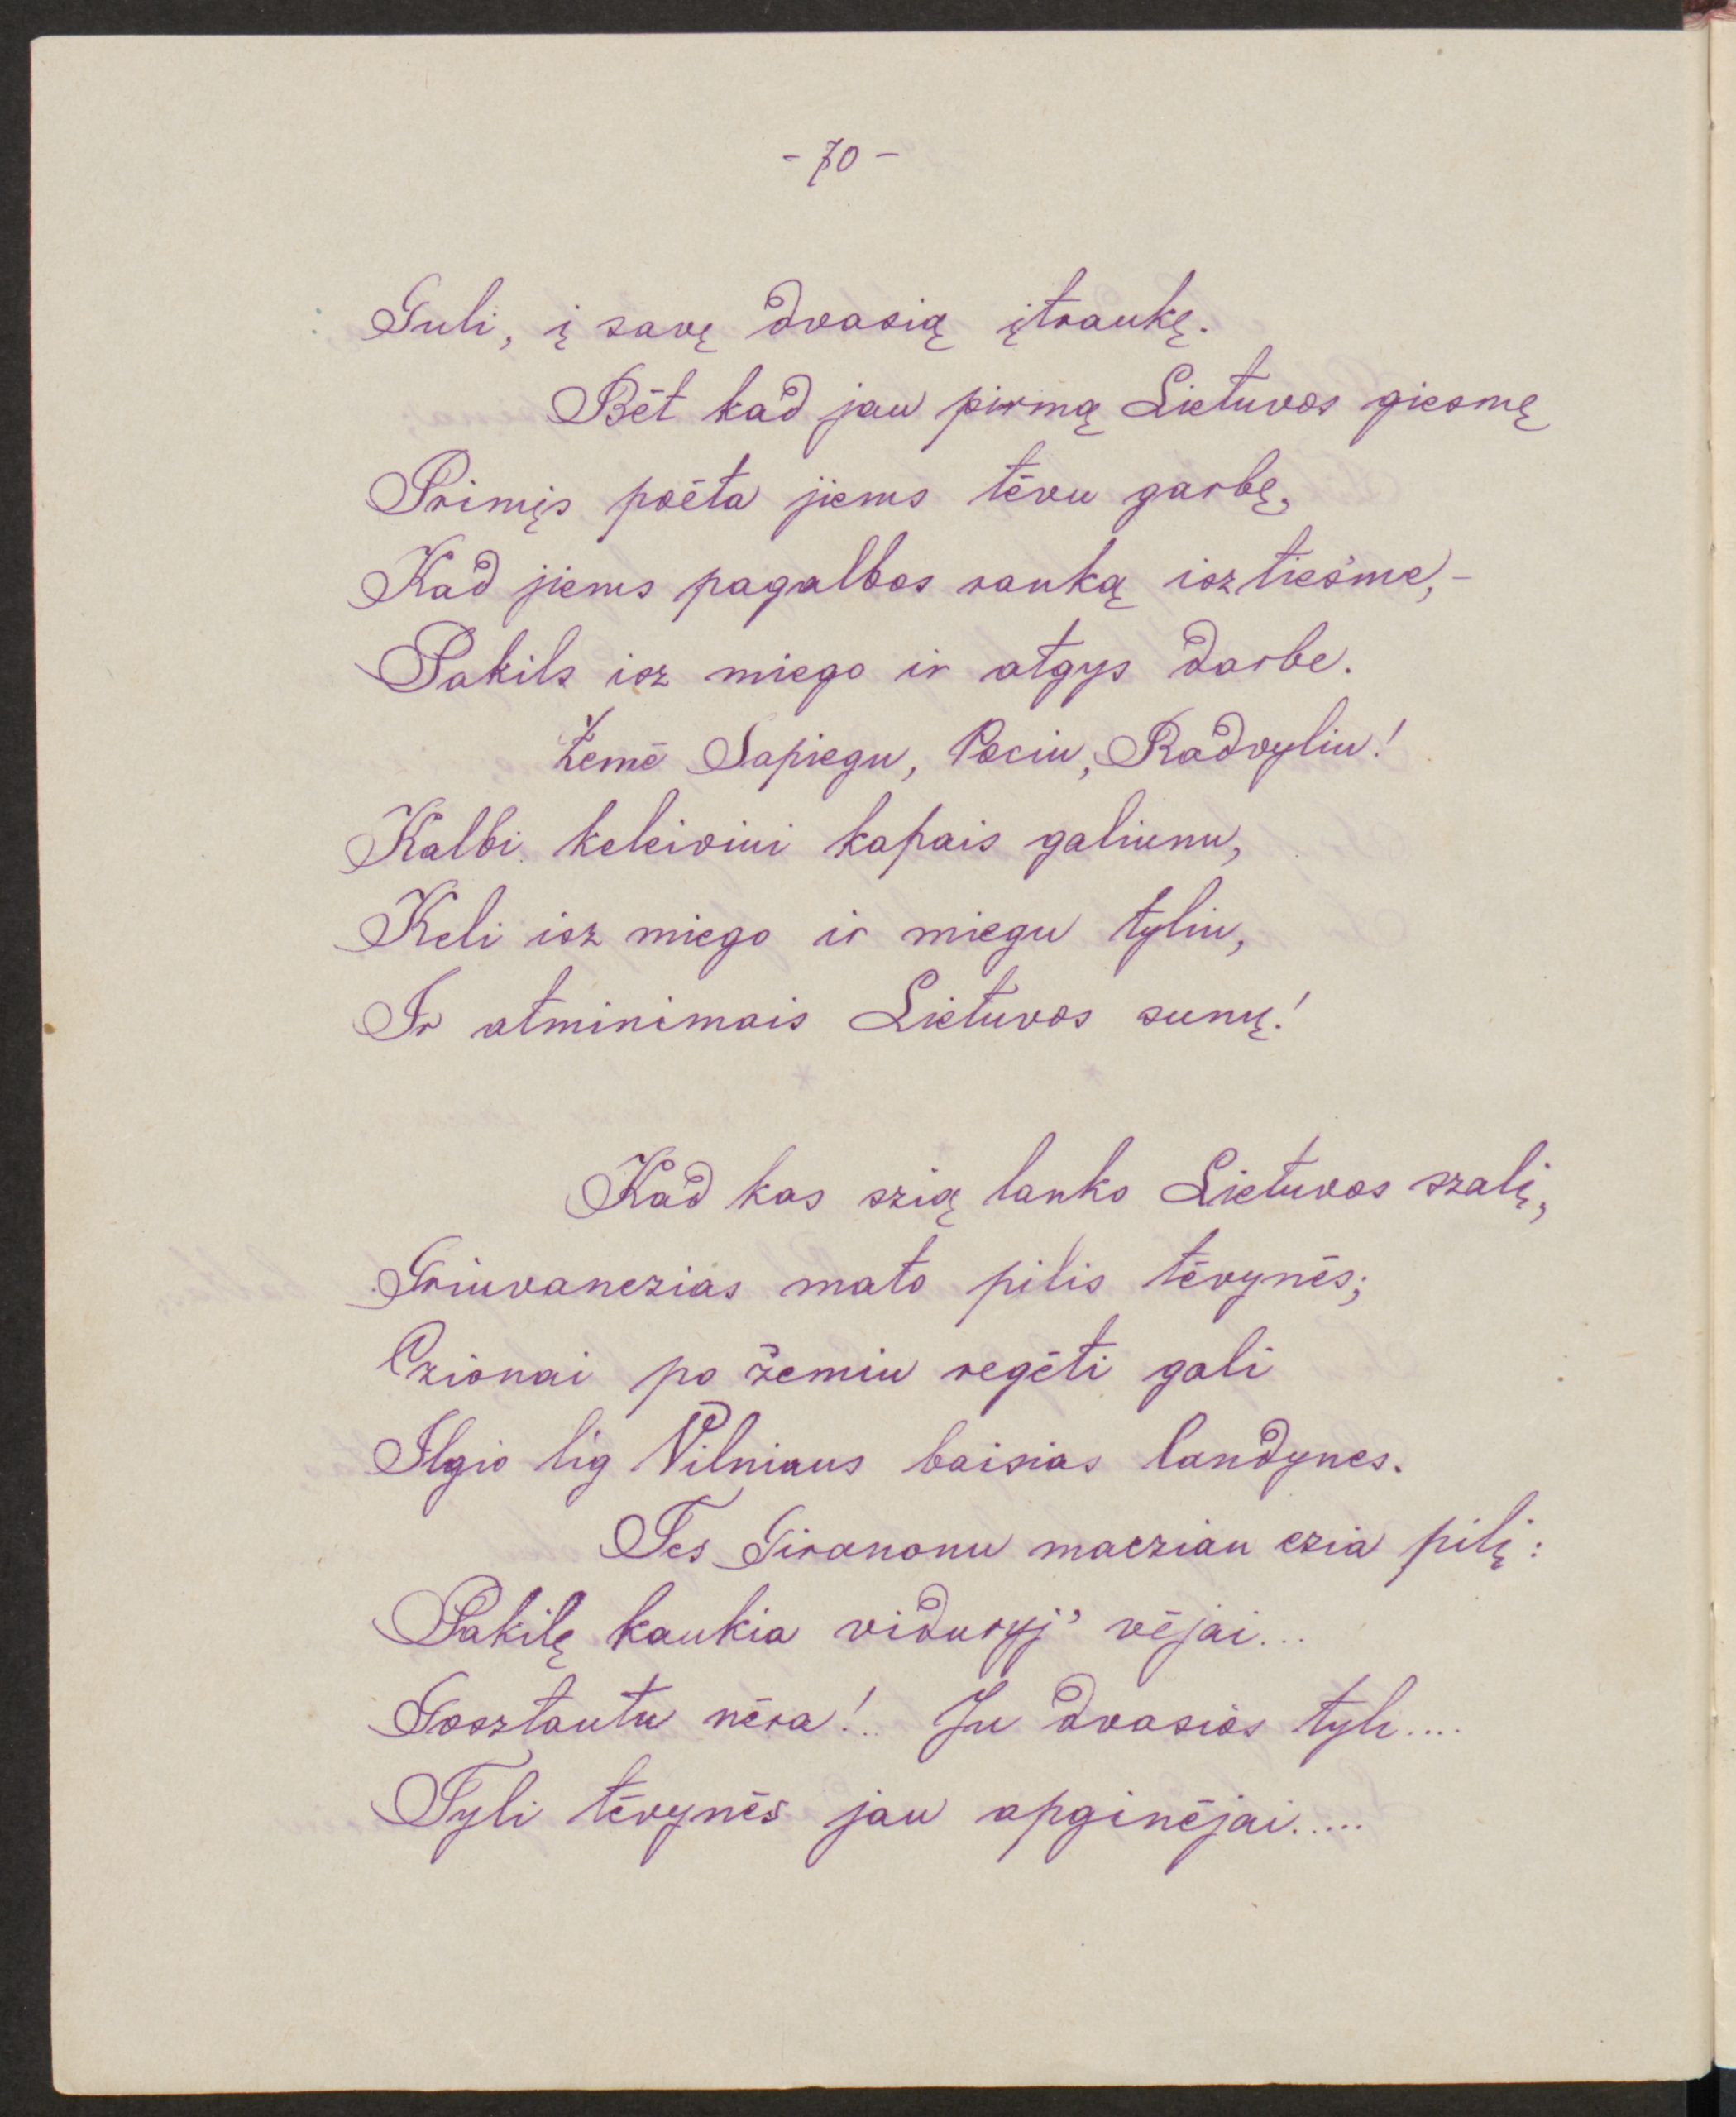 - 70 -
Guli, į savę dvasią įtraukę.
Bēt kad jau pirmą Lietuvos giesmę
Primįs poēta jiems tēvu garbę,
Kad jiems pagalbos ranką isztiesme, -
Pakils isz miego ir atgys darbe.
Žemē Sapiegu, Paciu, Radvyliu!
Kalbi keleiviui kapais galiunu,
Keli isz miego ir miegu tyliu,
Ir atminimais Lietuvos sunų!
Kad kas szią lanko Lietuvos szalį,
Griuvanczias mato pilis tēvynēs;
Czionai po žemiu regēti gali
Ilgio lig Vilniaus baisias landynes.
Tes Giranonu macziau czia pilį:
Pakilę kaukia viduryj' vējai...
Gosztautu nēra!.. Ju dvasios tyli....
Tyli tēvynēs jau apginējai.....